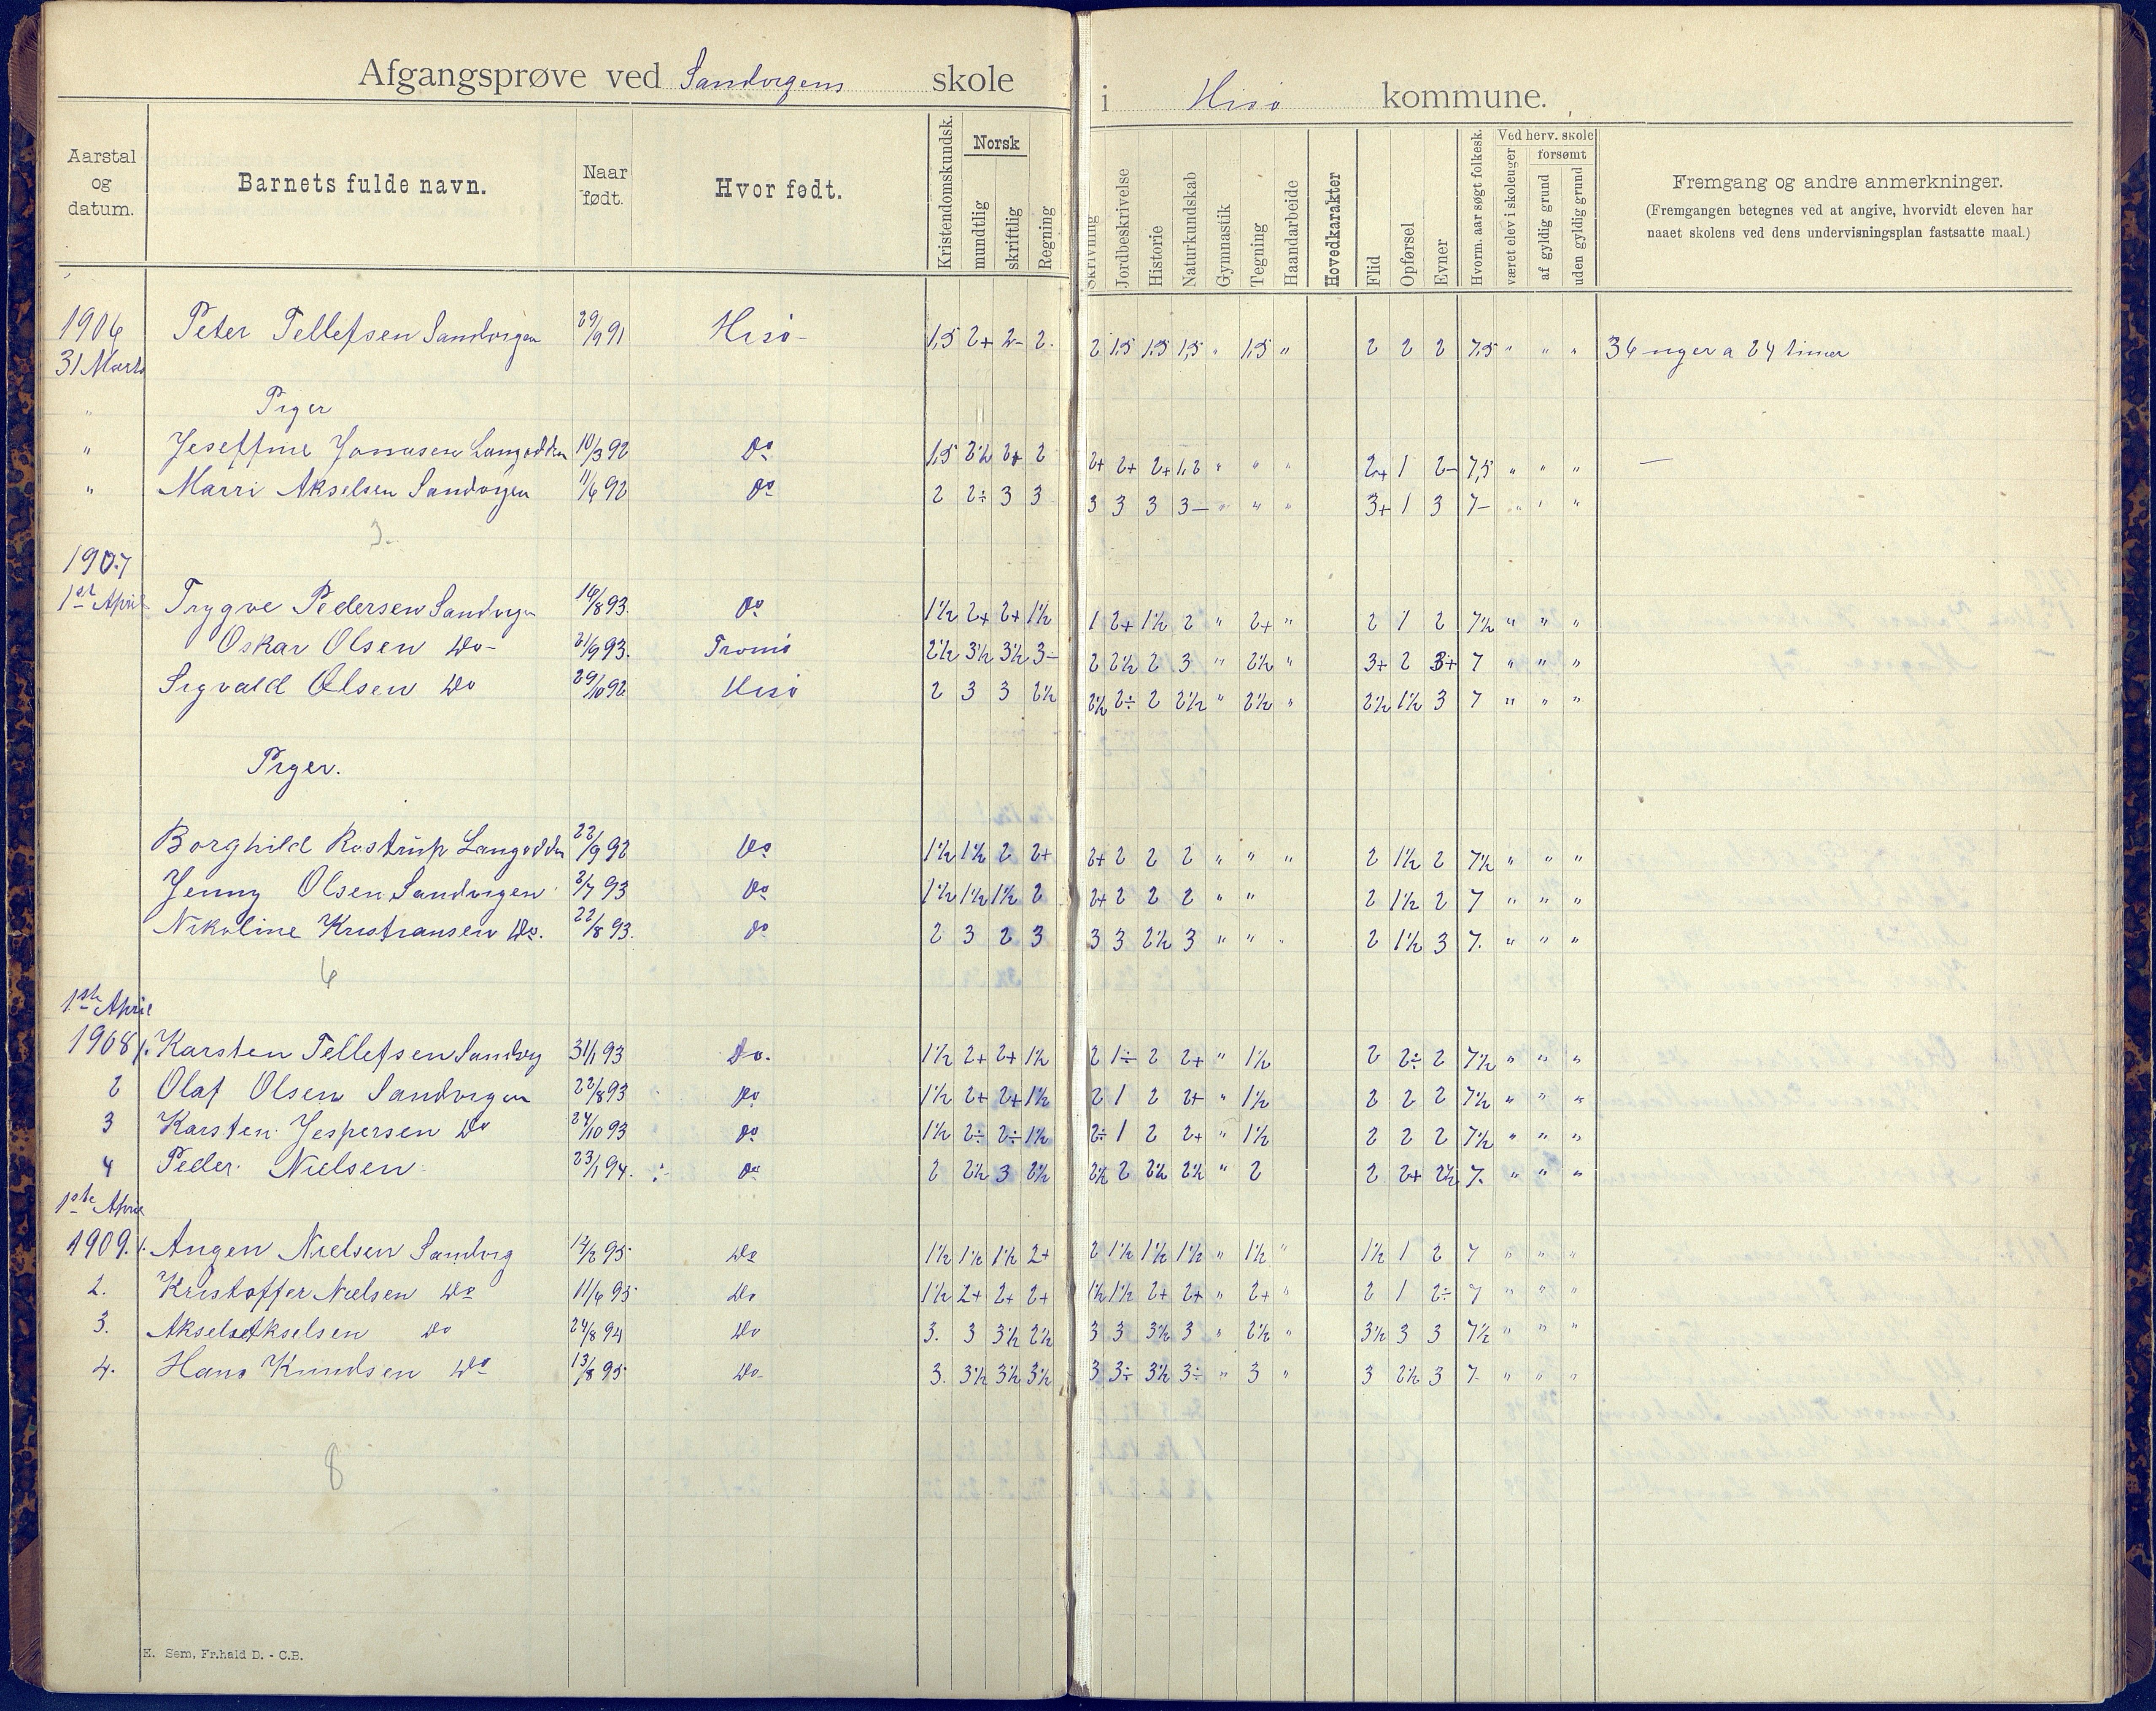 Afgangsprøve ved Sandvigens skole i Hisö kommune.
Aarstal og datum. Barnets fulde navn. Naar født. Hvor født. Kristendomskundsk. Norsk mundtlig skriftlig Regning Skrivning Jordbeskrivelse Historie Naturkundskab Gymnastik Tegning Haandarbeide Hovedkarakter Flid Opførsel Evner Hvorm. aar søgt folkesk. Ved herv. skole været elev i skoleuger forsømt af gyldig grund uden gyldig grund Fremgang og andre anmerkninger.
(Fremgangen betegnes ved at angive, hvorvidt eleven har
naaet skolens ved dens undervisningsplan fastsatte maal.)
1906 Peter Tellefsen Sandvigen 29/9 91 Hisö - 1,5 2+ 2- 2. 2 1,5 1,5 1,5 " 1,5 " 2 2 2 7,5 " " " 36 uger a 24 timer
31 Marts
" Piger
" Joseffine Jonasen Langodden 10/3 92 Do 1,5 2½ 2+ 2 2+ 2+ 2+ 1,2 " " " 2+ 1 2- 7,5 " " " —
" Marri Akselsen Sandvigen 11/6 92 Do 2 2÷ 3 3 3 3 3 3- " " " 3+ 1 3 7- " " "
3.
1907
1st April Trygve Pedersen Sandvigen 16/8 93. Do 1½ 2+ 2+ 1½ 1 2+ 1½ 2 " 2+ " 2 1 2 7½ " " "
Oskar Olsen Do - 21/9 93. Tromö 2½ 3½ 3½ 3- 2 2½ 2 3 " 2½ " 3+ 2 3+ 7 " " "
Sigvald Olsen Do 29/10 92 Hisö 2 3 3 2½ 2½ 2÷ 2 2½ " 2½ " 2½ 1½ 3 7 " " "
Piger.
Borghild Rostrup Langodden 22/9 92 Do 1½ 1½ 2 2+ 2+ 2 2 2 " " " 2 1½ 2 7½ " " "
Jenny Olsen Sandvigen 2/7 93 Do 1½ 1½ 1½ 2 2+ 2 2 2 " " 2 1½ 2 7 " " "
Nikoline Kristiansen Do. 22/8 93. Do 2 3 2 3 3 3 2½ 3 " " " 2 1½ 3 7. " " "
6
1ste April
1908 1. Karsten Tellefsen Sandvig 31/1 93 Do. 1½ 2+ 2+ 1½ 2 1÷ 2 2+ " 1½ 2 2÷ 2 7½ " " "
2 Olaf Olsen Sandvigen 22/8 93 Do 1½ 2+ 2+ 1½ 2 1 2 2+ " 1½ 2 2 2 7½ " " "
3 Karsten Jespersen Do 24/10 93 Do 1½ 2÷ 2÷ 1½ 2÷ 1 2 2+ " 1½ 2 2 2 7½ " " "
4 Peder Nielsen 23/1 94. Do 2 2½ 3 2½ 2½ 2 2½ 2½ " 2 2 2+ 2½ 7. " " "
1ste April
1909. 1. Angen Nielsen Sandvig 14/2 95 Do 1½ 1½ 1½ 2+ 2 1½ 1½ 1½ " 1½ " 1½ 1 2 7 " " "
2. Kristoffer Nielsen Do 11/6 95 Do 1½ 2+ 2+ 2+ 1½ 1½ 2+ 2+ " 2+ " 2 1 2÷ 7 " " "
3. Aksel Akselsen Do 24/8 94 Do 3. 3 3½ 2½ 3 3 3½ 3 " 2½ " 3½ 3 3 7½ " " "
4. Hans Knudsen Do 13/8 95 Do - 3. 3½ 3½ 3½ 3 3÷ 3½ 3÷ " 3 " 3 2½ 3 7- " " "
8
E. Sem, Fr.hald D. - C.B.